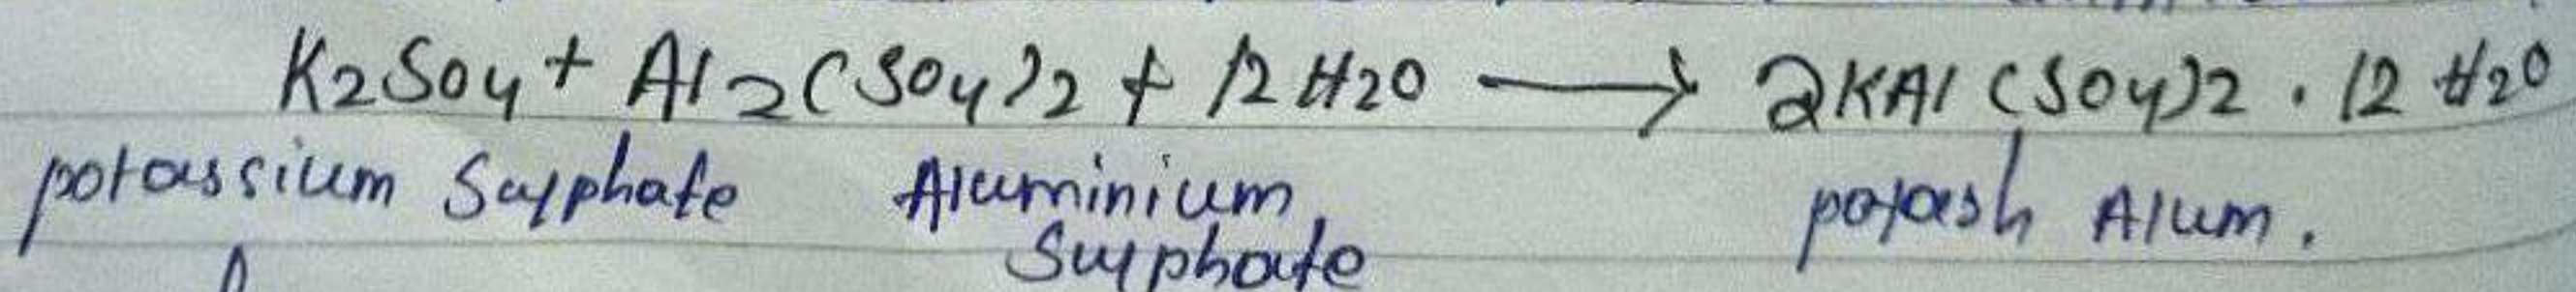 K2SO4 + Al2(SO4)2 + 12H2O ⟶ 2KAl(SO4)2 · 12H2O
potassium Sulphate Aluminium Sulphate potash Alum.